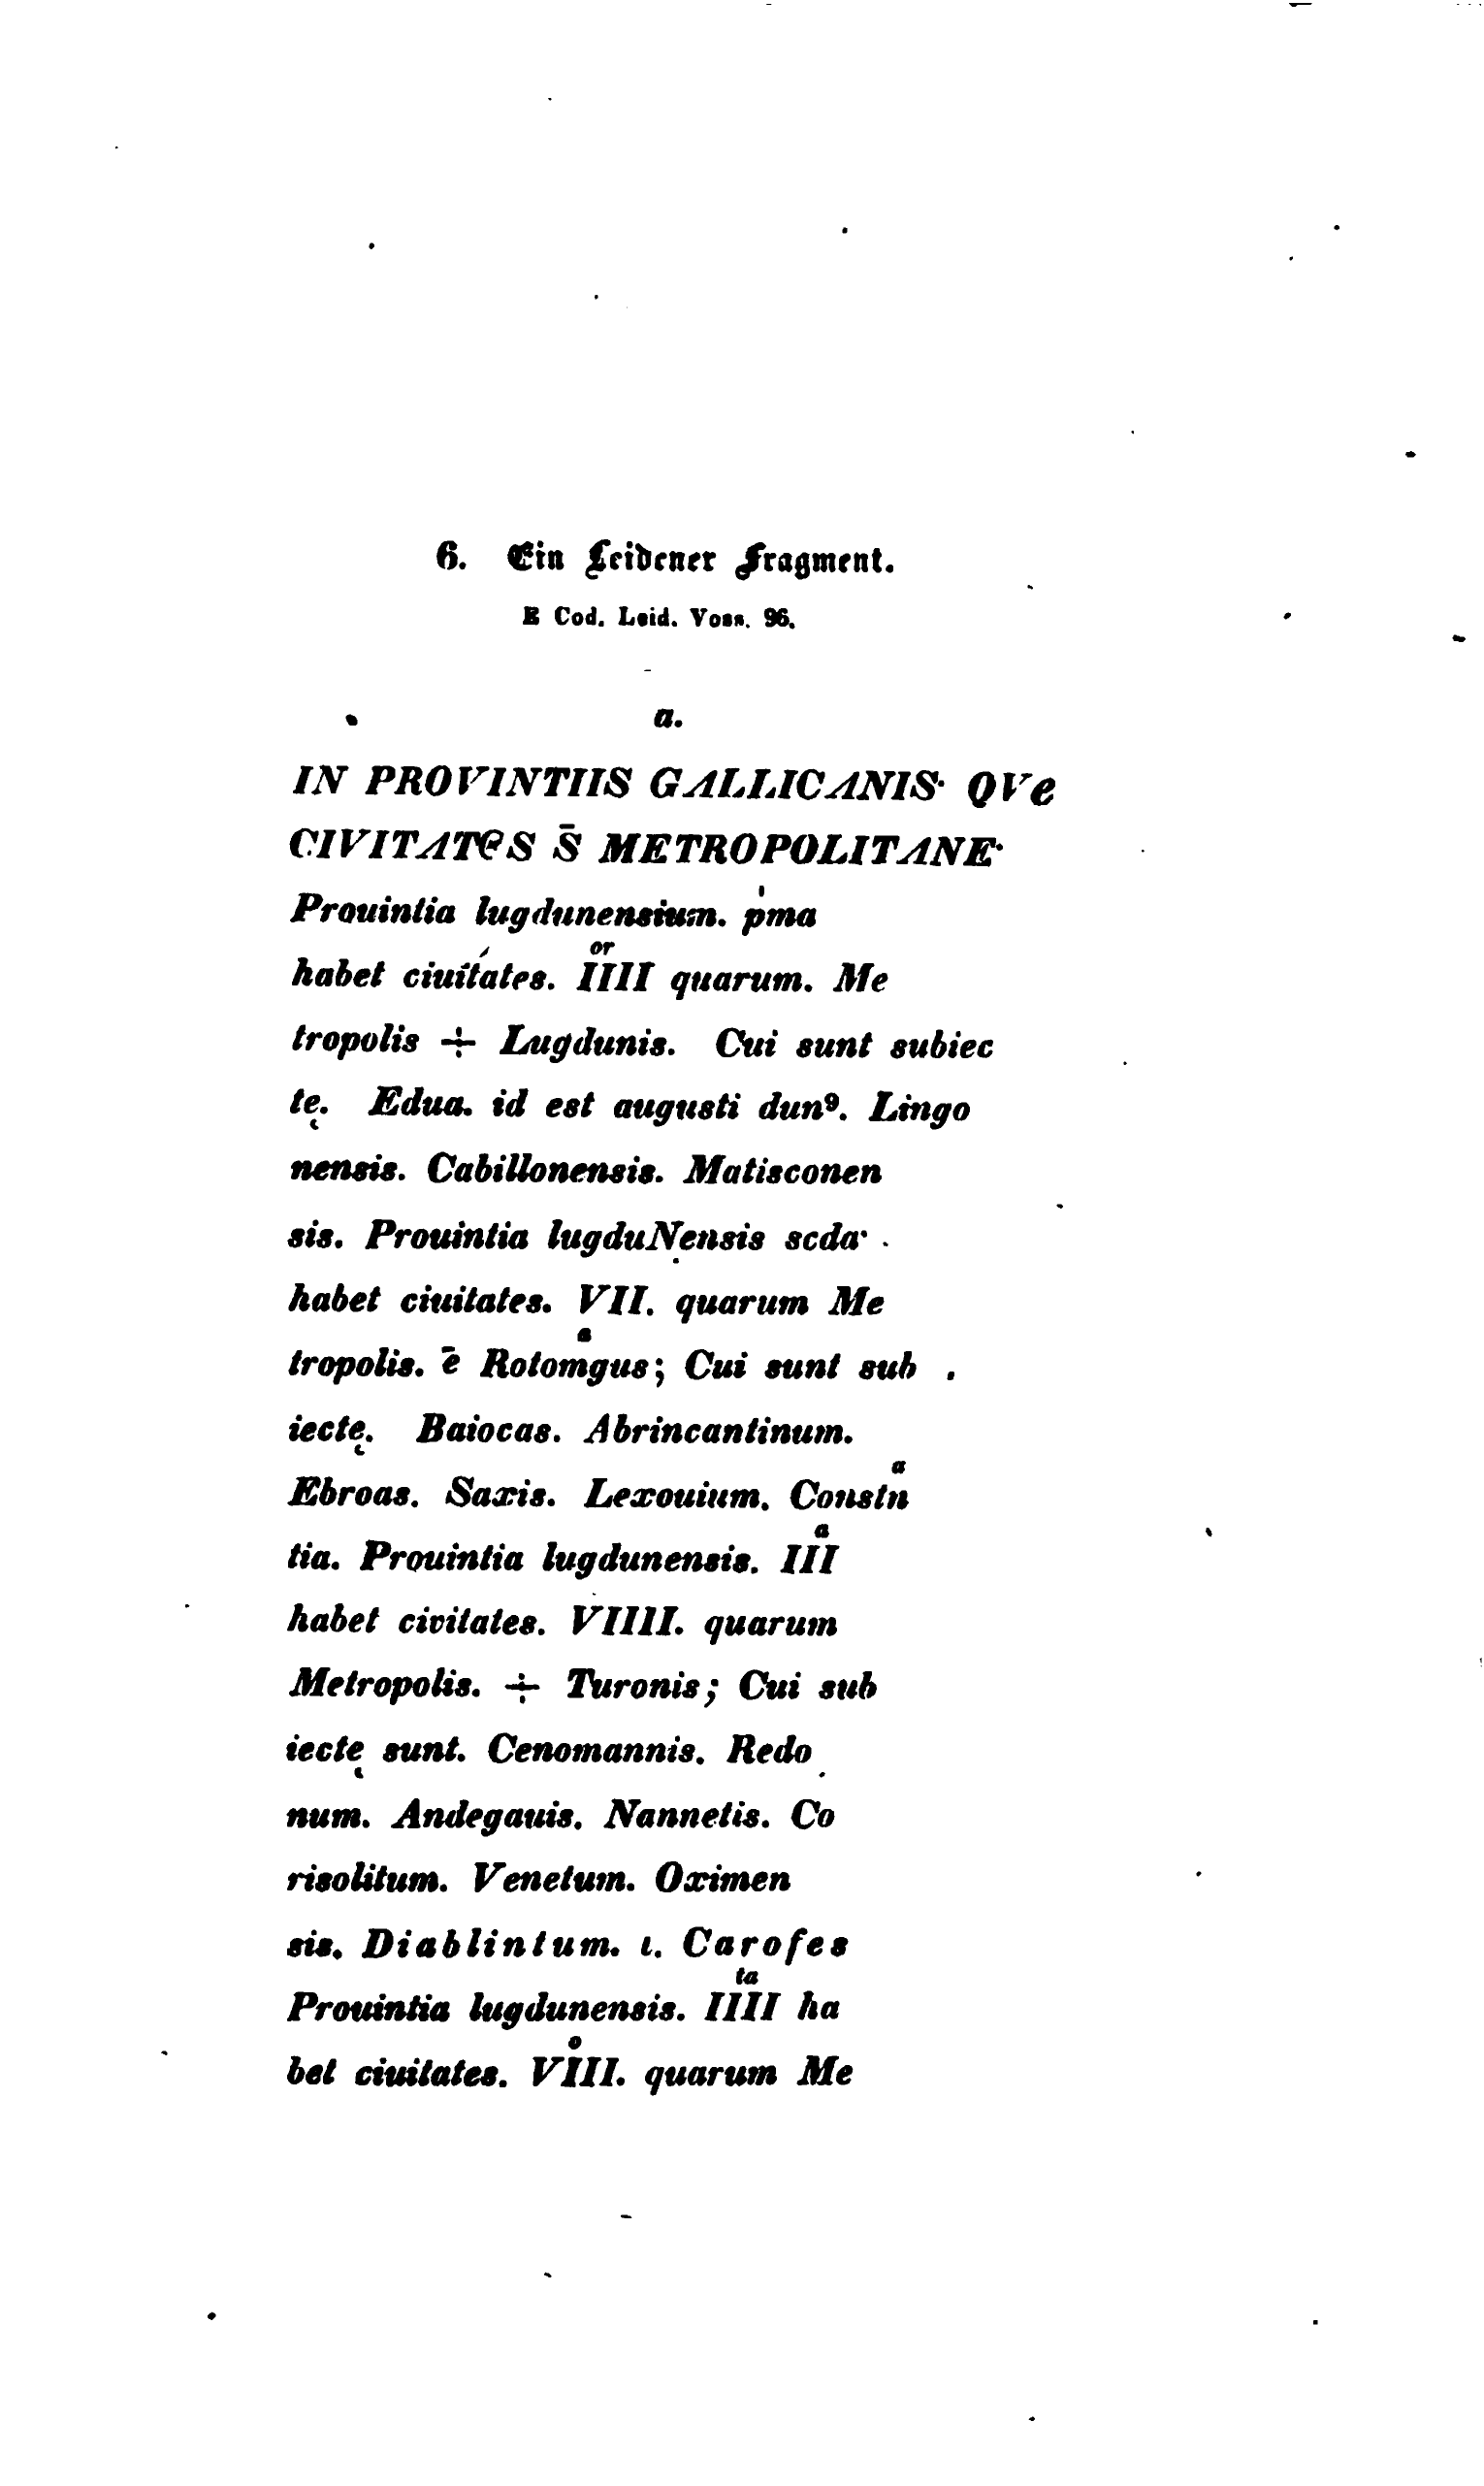 6. Ein Leidener Fragment.
E Cod. Leid. Voss. 96.
a.
IN PROVINTIIS GALLICANIS· QVe
CIVITATeS S̄ METROPOLITANE·
Prouintia lugdunensium. p'ma
habet ciuitátes. IIII^or quarum. Me
tropolis ÷ Lugdunis. Cui sunt subiec
tę. Edua. id est augusti dun⁹. Lingo
nensis. Cabillonensis. Matisconen
sis. Prouintia lugduNensis scda·
habet ciuitates. VII. quarum Me
tropolis. ē Rotomᵃgus; Cui sunt sub
iectę. Baiocas. Abrincantinum.
Ebroas. Saxis. Lexouium. Constᵃn
tia. Prouintia lugdunensis. IIIᵃ
habet civitates. VIIII. quarum
Metropolis. ÷ Turonis; Cui sub
iectę sunt. Cenomannis. Redo
num. Andegauis. Nannetis. Co
risolitum. Venetum. Oximen
sis. Diablintum. ι. Carofes
Prouintia lugdunensis. IIII^ta ha
bet ciuitates. VIII.^o quarum Me